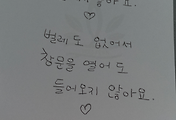 않아요.
♡
벌레도 없어서
창문을 열어도
들어오지 않아요.
♡